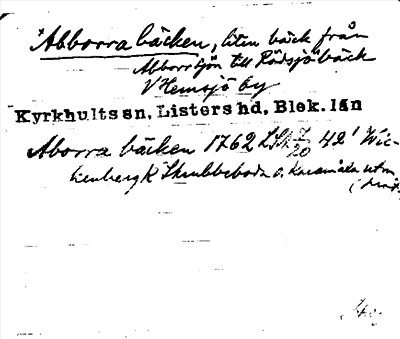 Abborra bäcken, liten bäck från
Abborrsjön till Rödsjöbäck
V Hemsjö by
Kyrkhults sn, Listers hd, Blek. län
Aborra bäcken 1762 LSA 7/20 42' Wic-
kenberg K Skubbeboda o. Karamåla utm